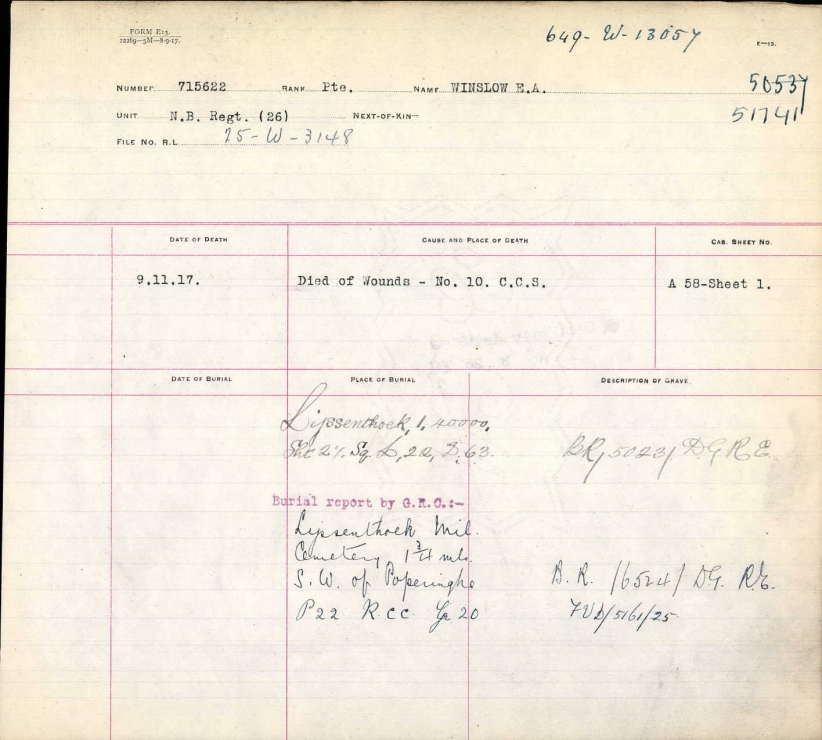 FORM E13.
12269—5M—8-9-17.
649- W-13057
E—13.
NUMBER 715622 RANK Pte. NAME WINSLOW E.A.
50537
UNIT N.B. Regt. (26) NEXT-OF-KIN—
51741
FILE NO. R.L. 25-W-3148
DATE OF DEATH CAUSE AND PLACE OF DEATH CAS. SHEET NO.
9.11.17. Died of Wounds - No. 10. C.C.S. A 58-Sheet 1.
DATE OF BURIAL PLACE OF BURIAL DESCRIPTION OF GRAVE.
Lijssenthoek, 1, 40000,
Sht. 27. Sq. L, 22, D. 63. BR, 5023/ D.G.R.E.
Burial report by G.R.C.:-
Lijssenthoek Mil.
Cemetery, 1 3/4 mls.
S.W. of Poperinghe B.R. /6524/ D.G. R.E.
P22 R.CC Gr 20 FUD/5161/25.